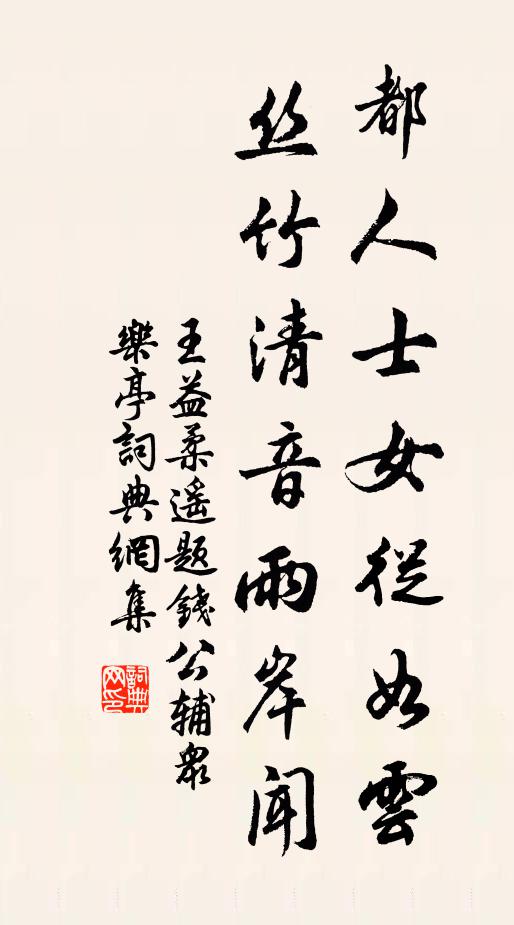 都人士女從如雲
丝竹清音兩岸聞
王益柔遥题錢公輔眾
樂亭詞典網集
詞典网印